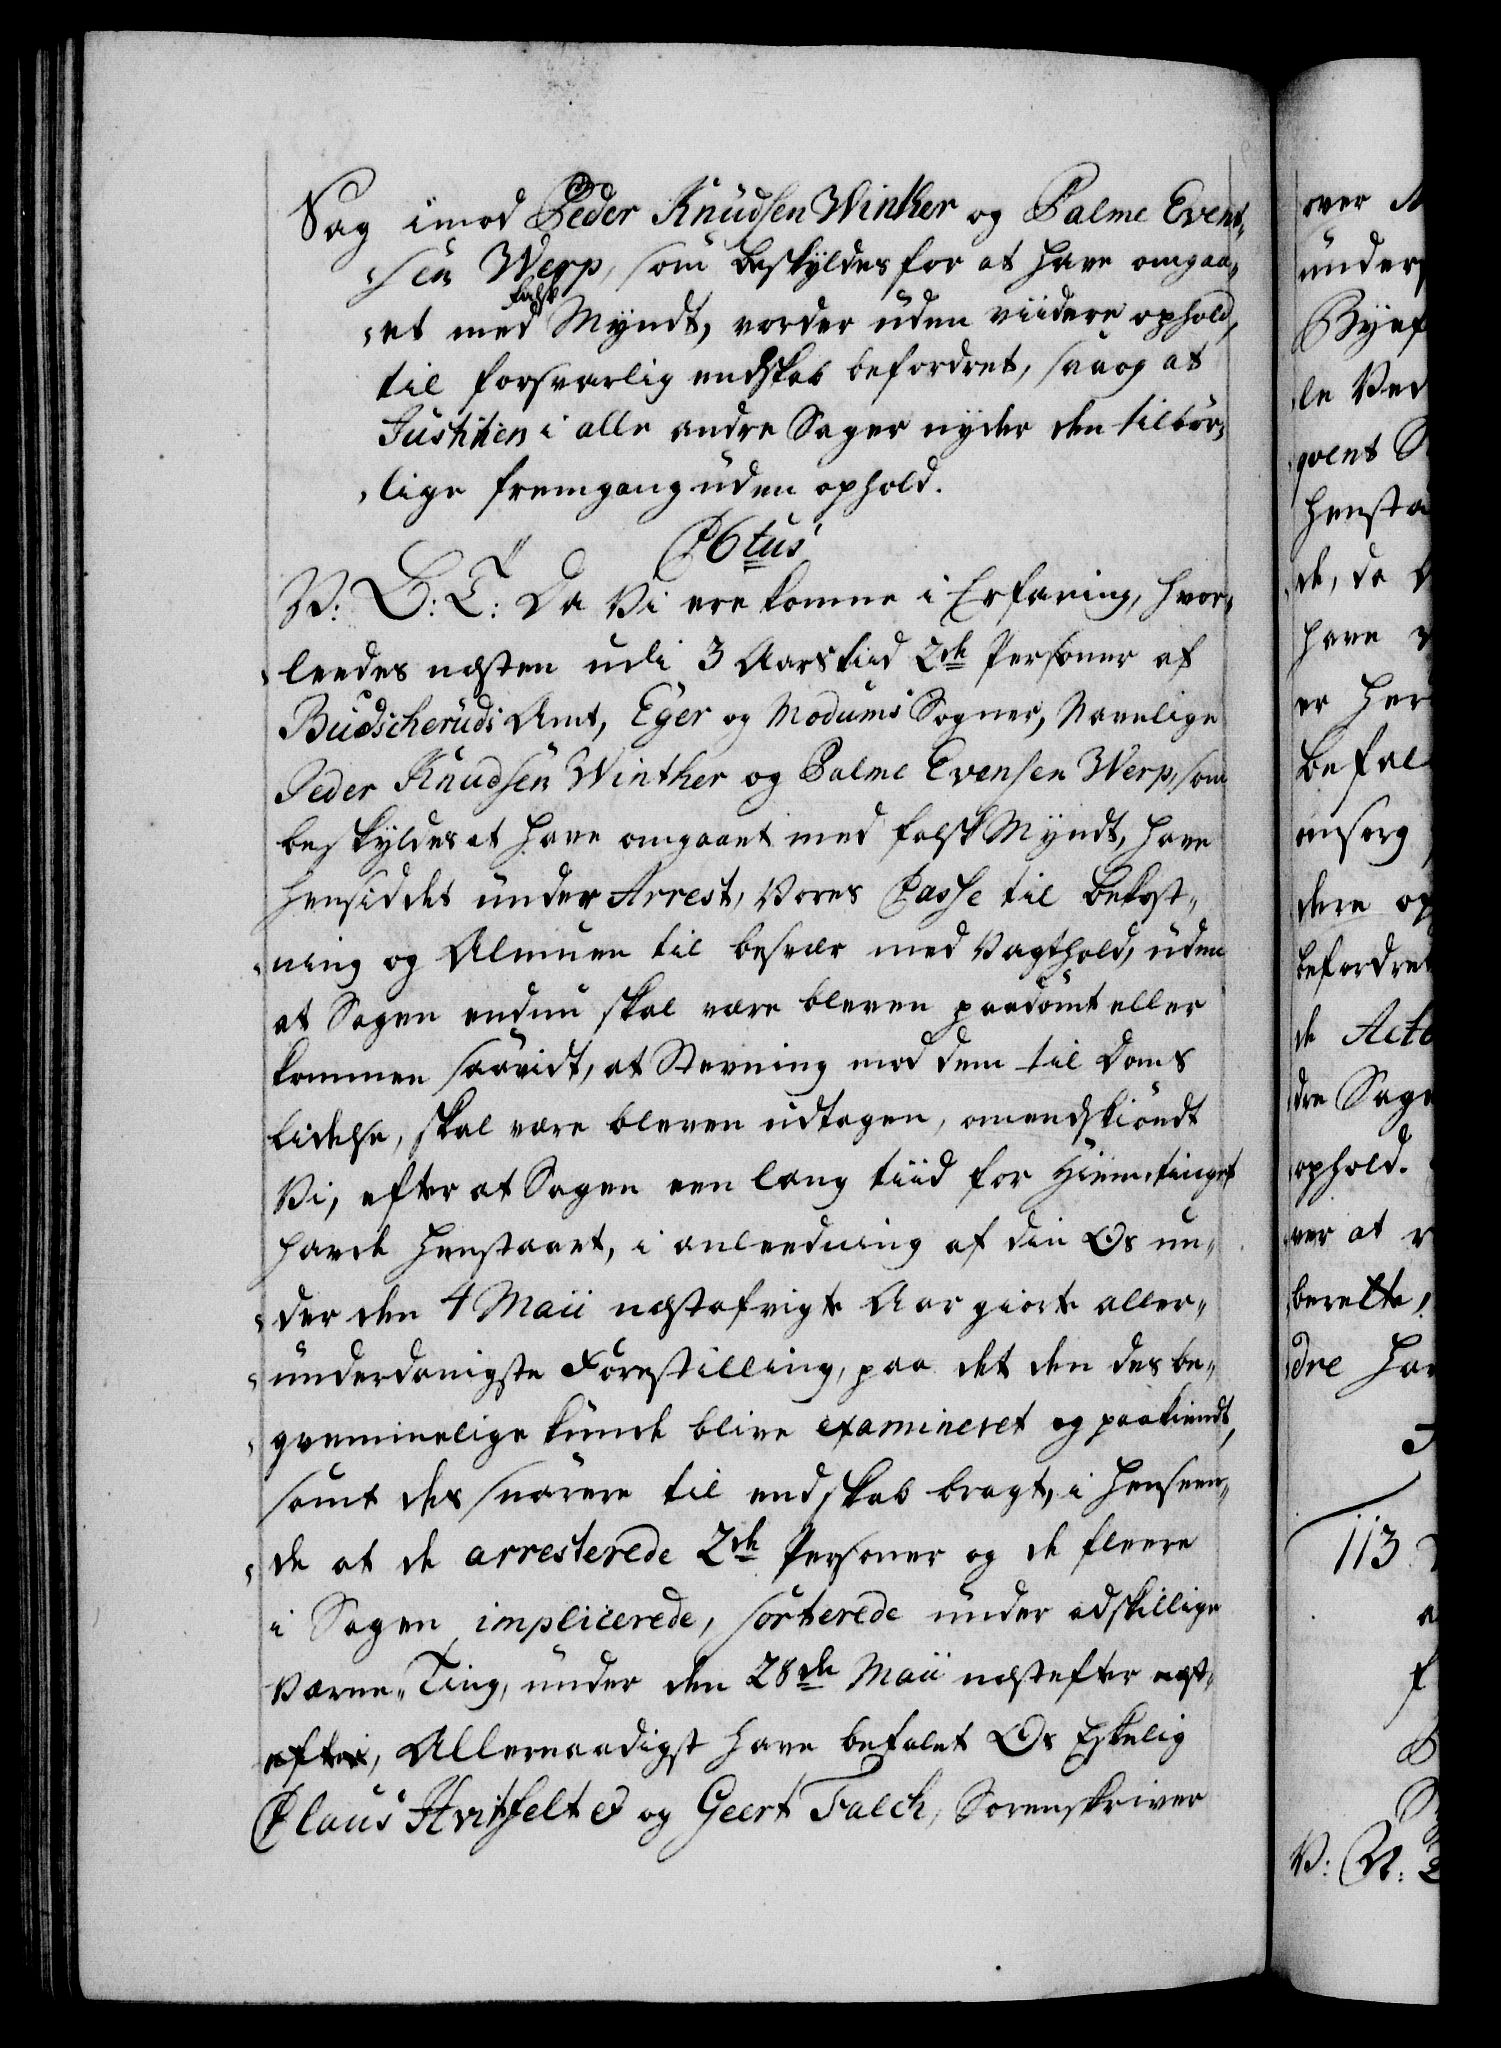 Sag imod Peder Knudsen Winther og Palme Even„
„sen Werp, som beskyldes for at have omgaa„
„et med falsk Myndt, vorder uden viidere ophold,
til forsvarlig endskab befordret, saa og at
Justitien i alle andre Sager nyder den tilbør„
„lige fremgang uden ophold.
Ptus
V: G: T: Da Vi ere komne i Erfaring, hvor„
„leedes næsten udi 3 Aars tiid 2de Personer af
Budscheruds Amt, Eger og Modums Sogner, Navnlige
Peder Knudsen Winther og Palme Evensen Werp, som
beskyldes at have omgaaet med falsk Myndt, have
hensiddet under Arrest, Vores Casse til bekost„
„ning og Almuen til besvær med Vagthold, uden
at Sagen endnu skal være bleven paadømt eller
kommen saavidt, at Stevning mod dem til Doms
lidelse, skal være bleven udtagen, omendskiøndt
Vi, efter at Sagen een lang tiid for Hiemetinget
havde henstaaet, i anleedning af din Os un„
„der den 4 Maii næstafvigte Aar giorte aller„
„underdanigste Forestilling, paa det den des be„
„qvemmelige kunde blive examineret og paakiendt,
samt des snarere til endskab bragt, i henseen„
„de at de arresterede 2de Personer og de fleere
i Sagen implicerede, sorterede under adskillige
Værne„Ting, under den 28de Maii næstefter næst„
efter, Allernaadigst have befalet Os Elskelig
Claus Hvitfelt & og Geert Falch, Sorenskriver